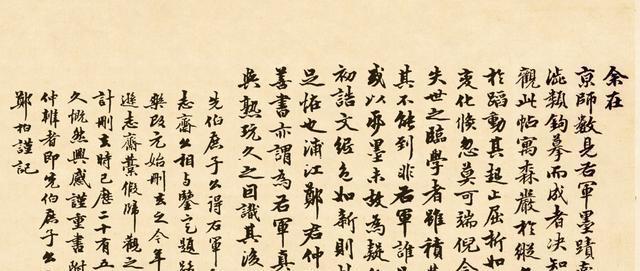 余在
京師數見右軍墨蹟
澁類鉤摹而成者決知
觀此帖寓森嚴於縱
於蹈動其起止屈折如
變化倏忽莫可端倪令
失世之臨學者雖積
其不能到非右軍誰
或以紙墨未故為疑
初誥文紙色如新則
足怪也浦江鄭君仲
善書亦謂為右軍真
與熟玩久之因識其後
先伯庶子公得右軍
志齋公相与鑒定題跋
改元始刪去之今年
遜志齋蒙假歸觀之
計刪去時已歷二十有五
久慨然興感謹重書附
仲辨者即先伯庶子公
鄭柏謹記